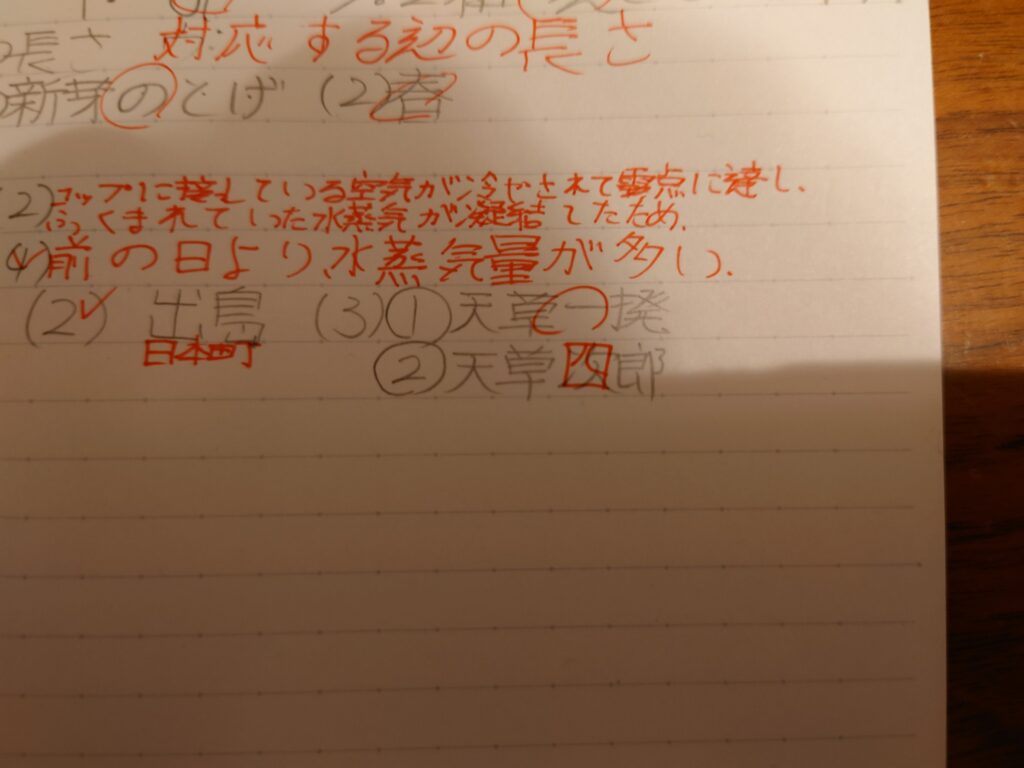 長さ 対応する辺の長さ
新芽のとげ (2)春
(2)コップに接している空気が冷やされて露点に達し、
ふくまれていった水蒸気が凝結したため。
(4)前の日より、水蒸気量が多い。
(2) 出島 (3)①天草一揆
日本町 ②天草四郎